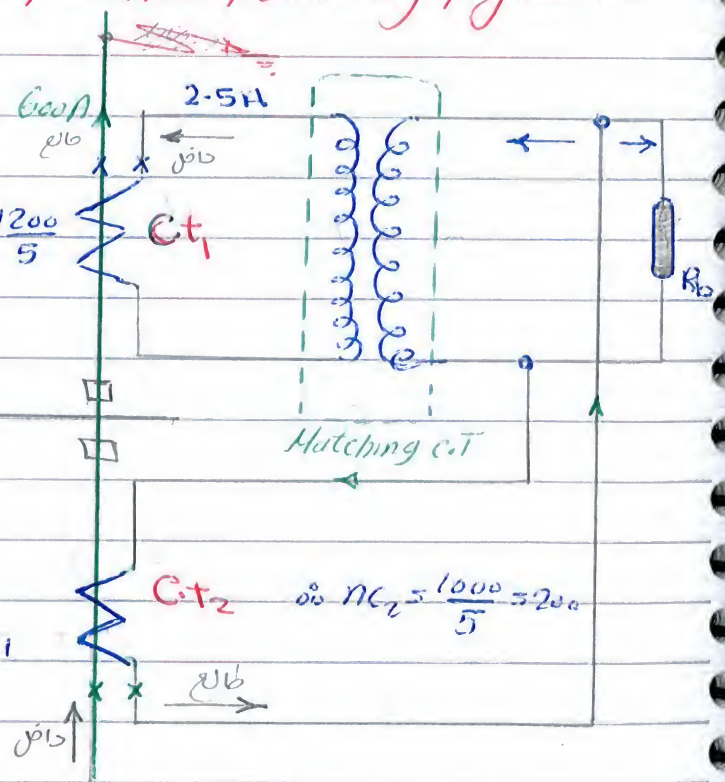 600A
2.5A
طالع
داخل
1200
5
Ct₁
Rb
Matching C.T
Ct₂
∴ nc₂ = 1000/5 = 200
طالع
داخل